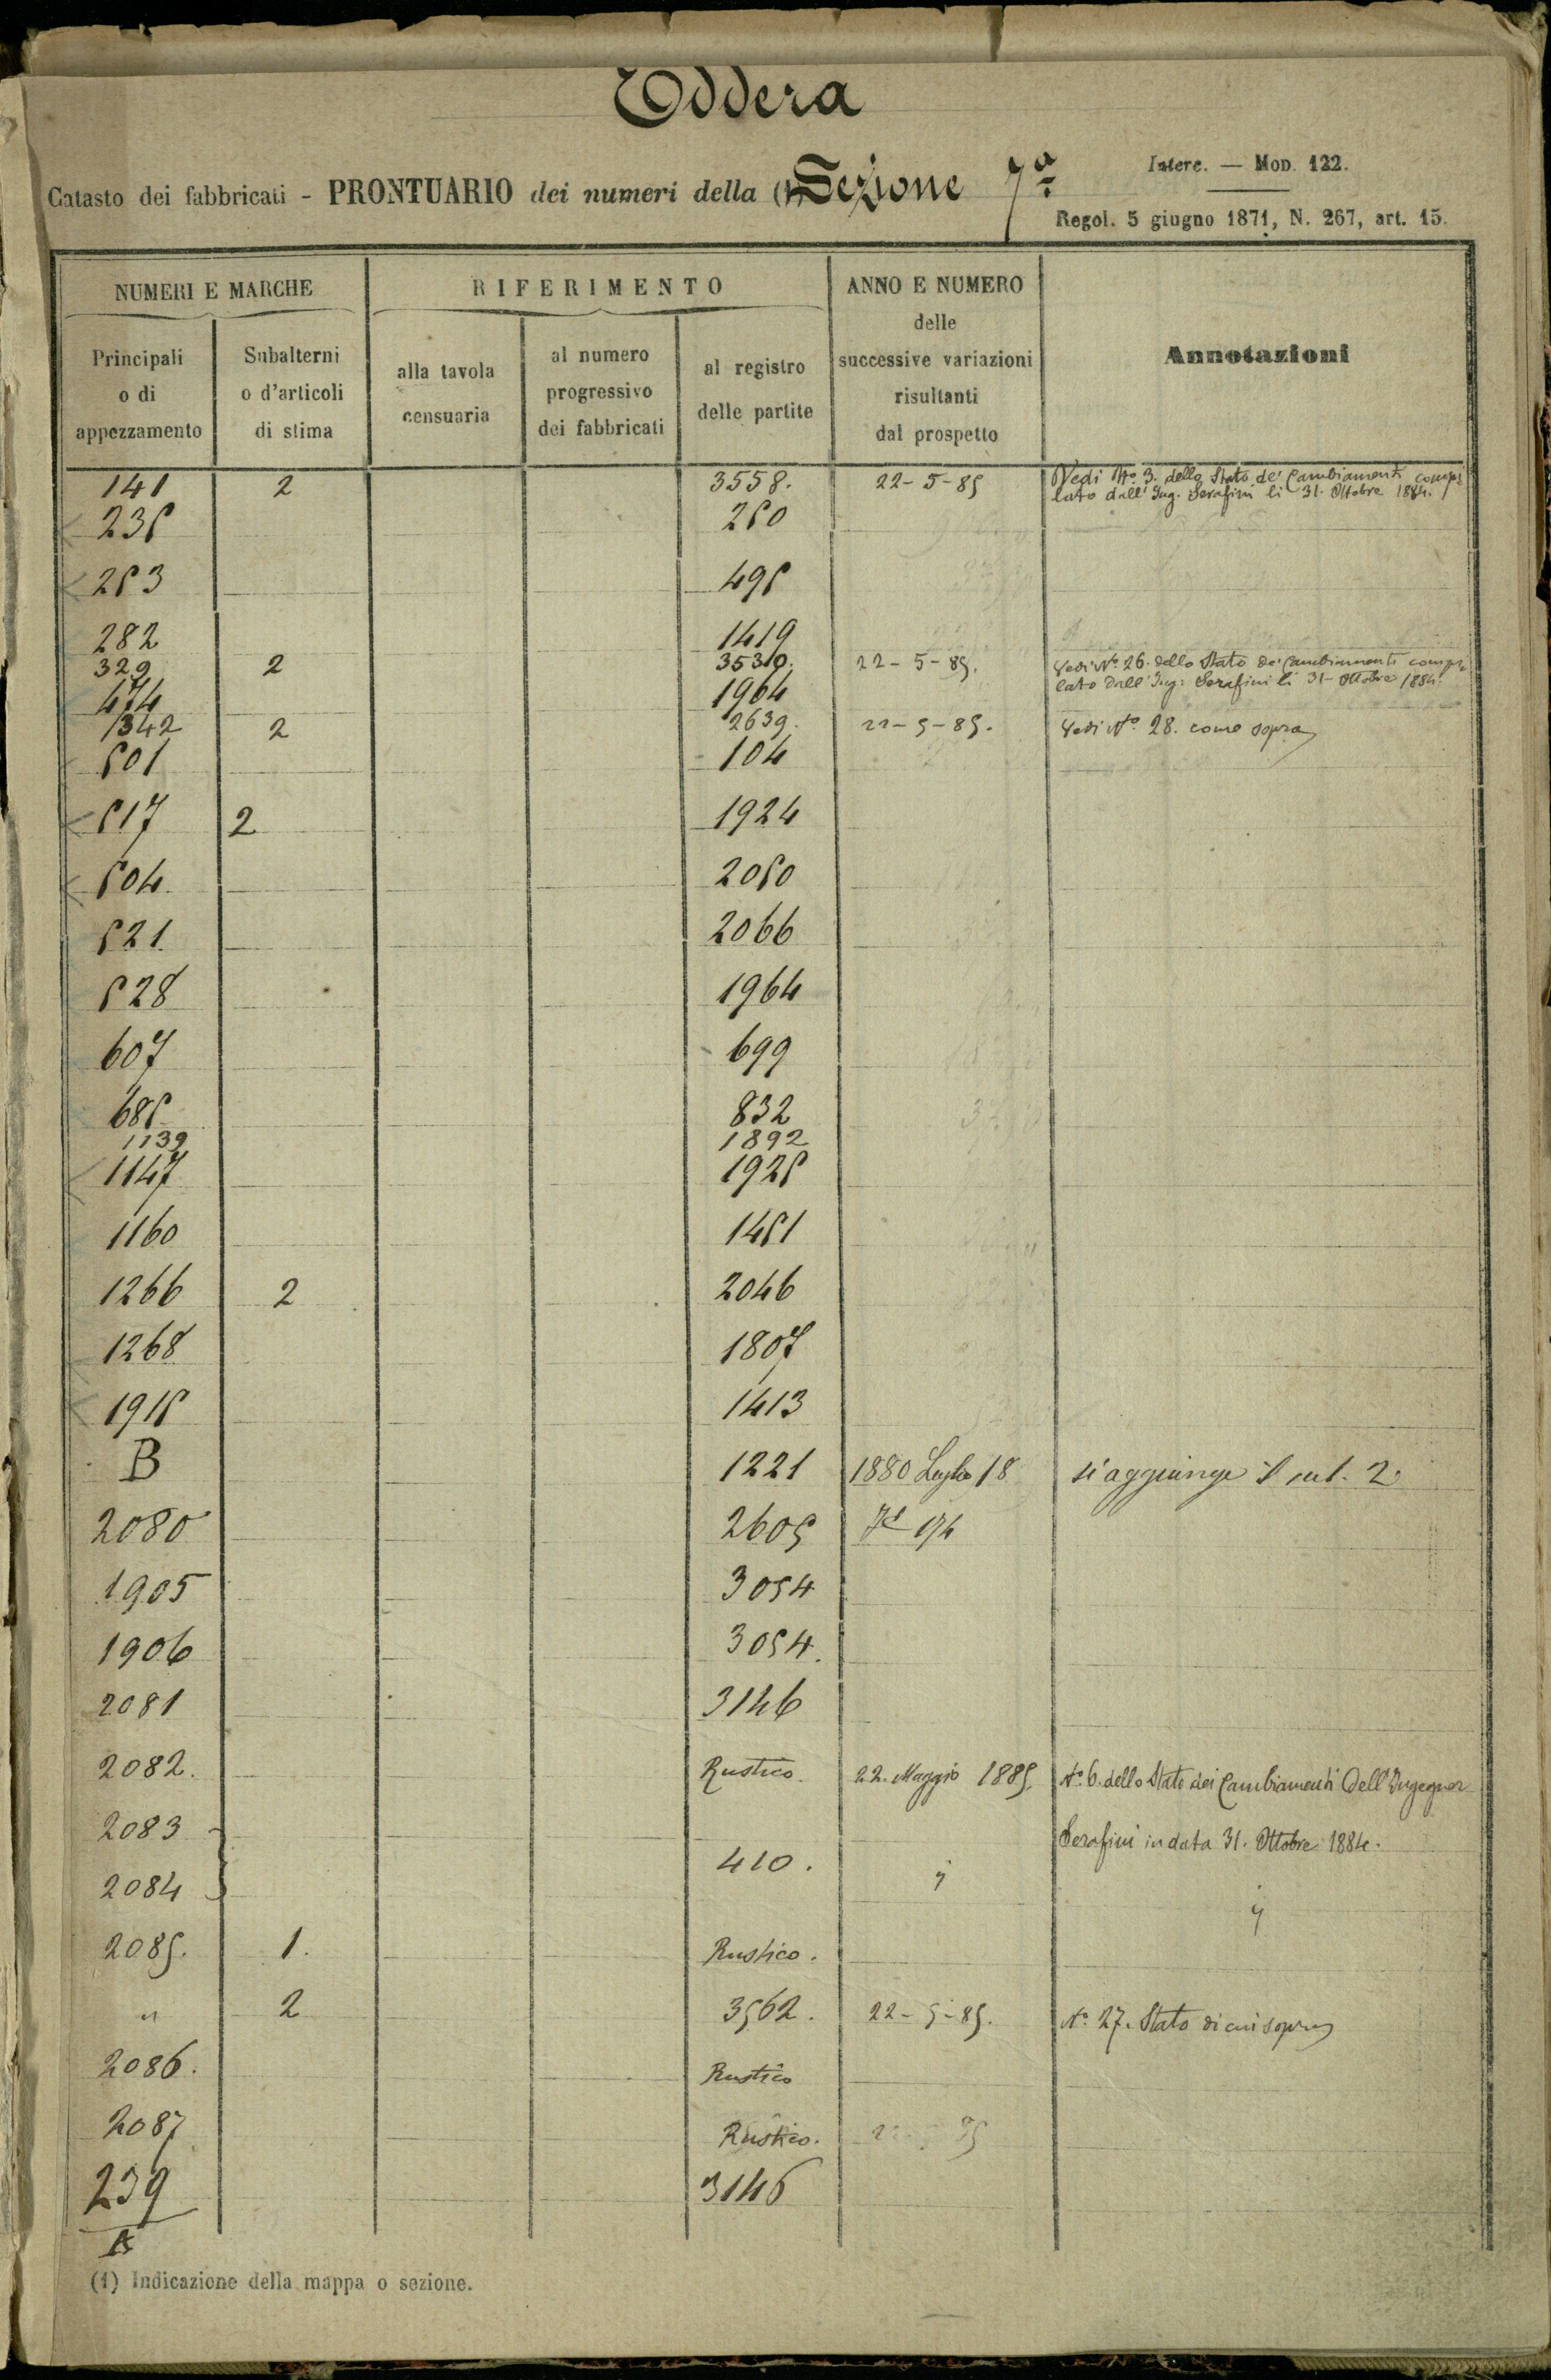 Eddera
Interc. — Mod. 122.
Catasto dei fabbricati - PRONTUARIO dei numeri della (1) Sezione 7ª
Regol. 5 giugno 1871, N. 267, art. 15.
NUMERI E MARCHE RIFERIMENTO ANNO E NUMERO
delle
successive variazioni
risultanti
dal prospetto
Annotazioni
Principali
o di
appezzamento
Subalterni
o d'articoli
di stima
alla tavola
censuaria
al numero
progressivo
dei fabbricati
al registro
delle partite
141 2 3558. 22-5-85 Vedi Nº 3. dello Stato de' Cambiamenti compi
lato dall' Ing. Serafini li 31. Ottobre 1884.
235 250
253 495
282 1419
329 2 22-5-85. Vedi Nº 26. dello Stato de' Cambiamenti compi
lato dall' Ing: Serafini li 31- Ottobre 1884.
474 1964
1342 2 2639. 22-5-85. Vedi Nº 28. come sopra
501 104
517 2 1924
504 2050
521 2066
528 1964
607 699
685 832
1139 1892
1147 1925
1160 1451
1266 2 2046
1268 1807
1915 1413
B 1221 1880 Luglio 18 si aggiunge il sub. 2.
2080 2605
1905 3054
1906 3054.
2081 3146
2082. Rustico. 22. Maggio 1885. Nº 6. dello Stato dei Cambiamenti Dell'Ingegner
2083 Serafini in data 31. Ottobre 1884.
410.
2084
2085. 1. Rustico.
" 2 3562. 22-5-85. Nº 27. Stato di cui sopra
2086. Rustico
2087 Rustico.
239 3146
(1) Indicazione della mappa o sezione.